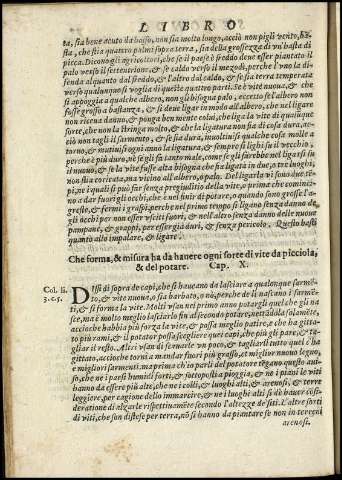 LIBRO
ta, sia bene acuto da basso, non sia molto longo, acciò non pigli vento, ba
sta, che stia quatro palmi supra terra, sia della grossezza di vn'hasta di
picca. Dicono gli agricoltori, che se il paese è freddo deue esser piantato il
palo verso il settentrione, & se caldo verso il mezodì, perche l'vno la di-
fenda alquanto dal freddo, & l'altro dal caldo, & se sia terra temperata
verso qualunque si voglia di queste quattro parti. Se è vite nuoua, & che
si appoggia a qualche albero, non gli bisogna palo, eccetto se l'albero non
fusse grosso a bastanza, & si deue ligare intorno all'albero, che nel ligare
non riceua danno, & ponga ben mente colui, che liga la vite di qualunque
sorte, che non la stringa molto, & che la ligatura non sia di cosa dura, ac-
ciò non tagli il sarmento, & se sia dura, inuolti us qualche cosa molle a
torno, & mutinsi ogni anno la ligatura, & sempre si lighi su il vecchio,
perche è più duro, nè se gli fa tanto male, come se gli farebbe nel ligarsi sù
il nuouo, & se la vite fusse alta bisogna che sia ligata in due, o tre luoghi,
non stia coricata, ma vicino all'albero, o palo. Del ligarla vi sono due tē
pi, ne i quali si può far senza pregiuditio della vite, o prima che cominci-
no a dar fuori gli occhi, che è nel finir di potare, o quando sono grosse l'a-
greste, & fermi i graspi, perche nel primo tempo si ligano senza danno de
gli occhi per non esser vsciti fuori, & nell'altro senza danno delle nuoue
pampane, & grappi, per esser già duri, & senza pericolo. Questo basti
quanto allo impalare, & ligare.
Che forma, & misura ha da hauere ogni sorte di vite da picciola,
& del potare. Cap. X.
Col. li.
3. c. 5.
DIssi di sopra de capi, che si haueano da lasciare a qualunque sarmē-
to, & vite nuoua, o sia barbato, o nò, perche de lì nascano i sarmen-
ti, & si forma la vite. Molti vsan nel primo anno potargli quel che gli na
sce, ma è molto meglio lasciarlo fin al secondo potare, nettādola solamēte,
accioche habbia più forza la vite, & possa meglio patire, e che ha gitta-
to più rami, & il potator possa sciegliere quei capi, che più gli pare, & ta-
gliar il resto. Altri vsan di sernarle vn poco, & tagliarli tutto quel c'ha
gittato, accioche torni a mandar fuori più grosso, et miglior nuouo legno,
e migliori sarmenti, ma prima ch'io parli del potatore tēgano questo auì-
so, che ne i paesi humidi forti, & sottoposti a pioggia, & ne i piani le viti
hanno da essere più alte, che ne i colli, & luoghi alti, & arenosi, & terra
leggiere, per cagione dello immarcire, & ne i luoghi alti si dè hauer cōsi-
deratione di alzarle rispettiuamēte secondo l'altezze de' siti. L'altre sorti
di viti, che son distese per terra, nō si hanno da piantare se non in terreni
arenosi,